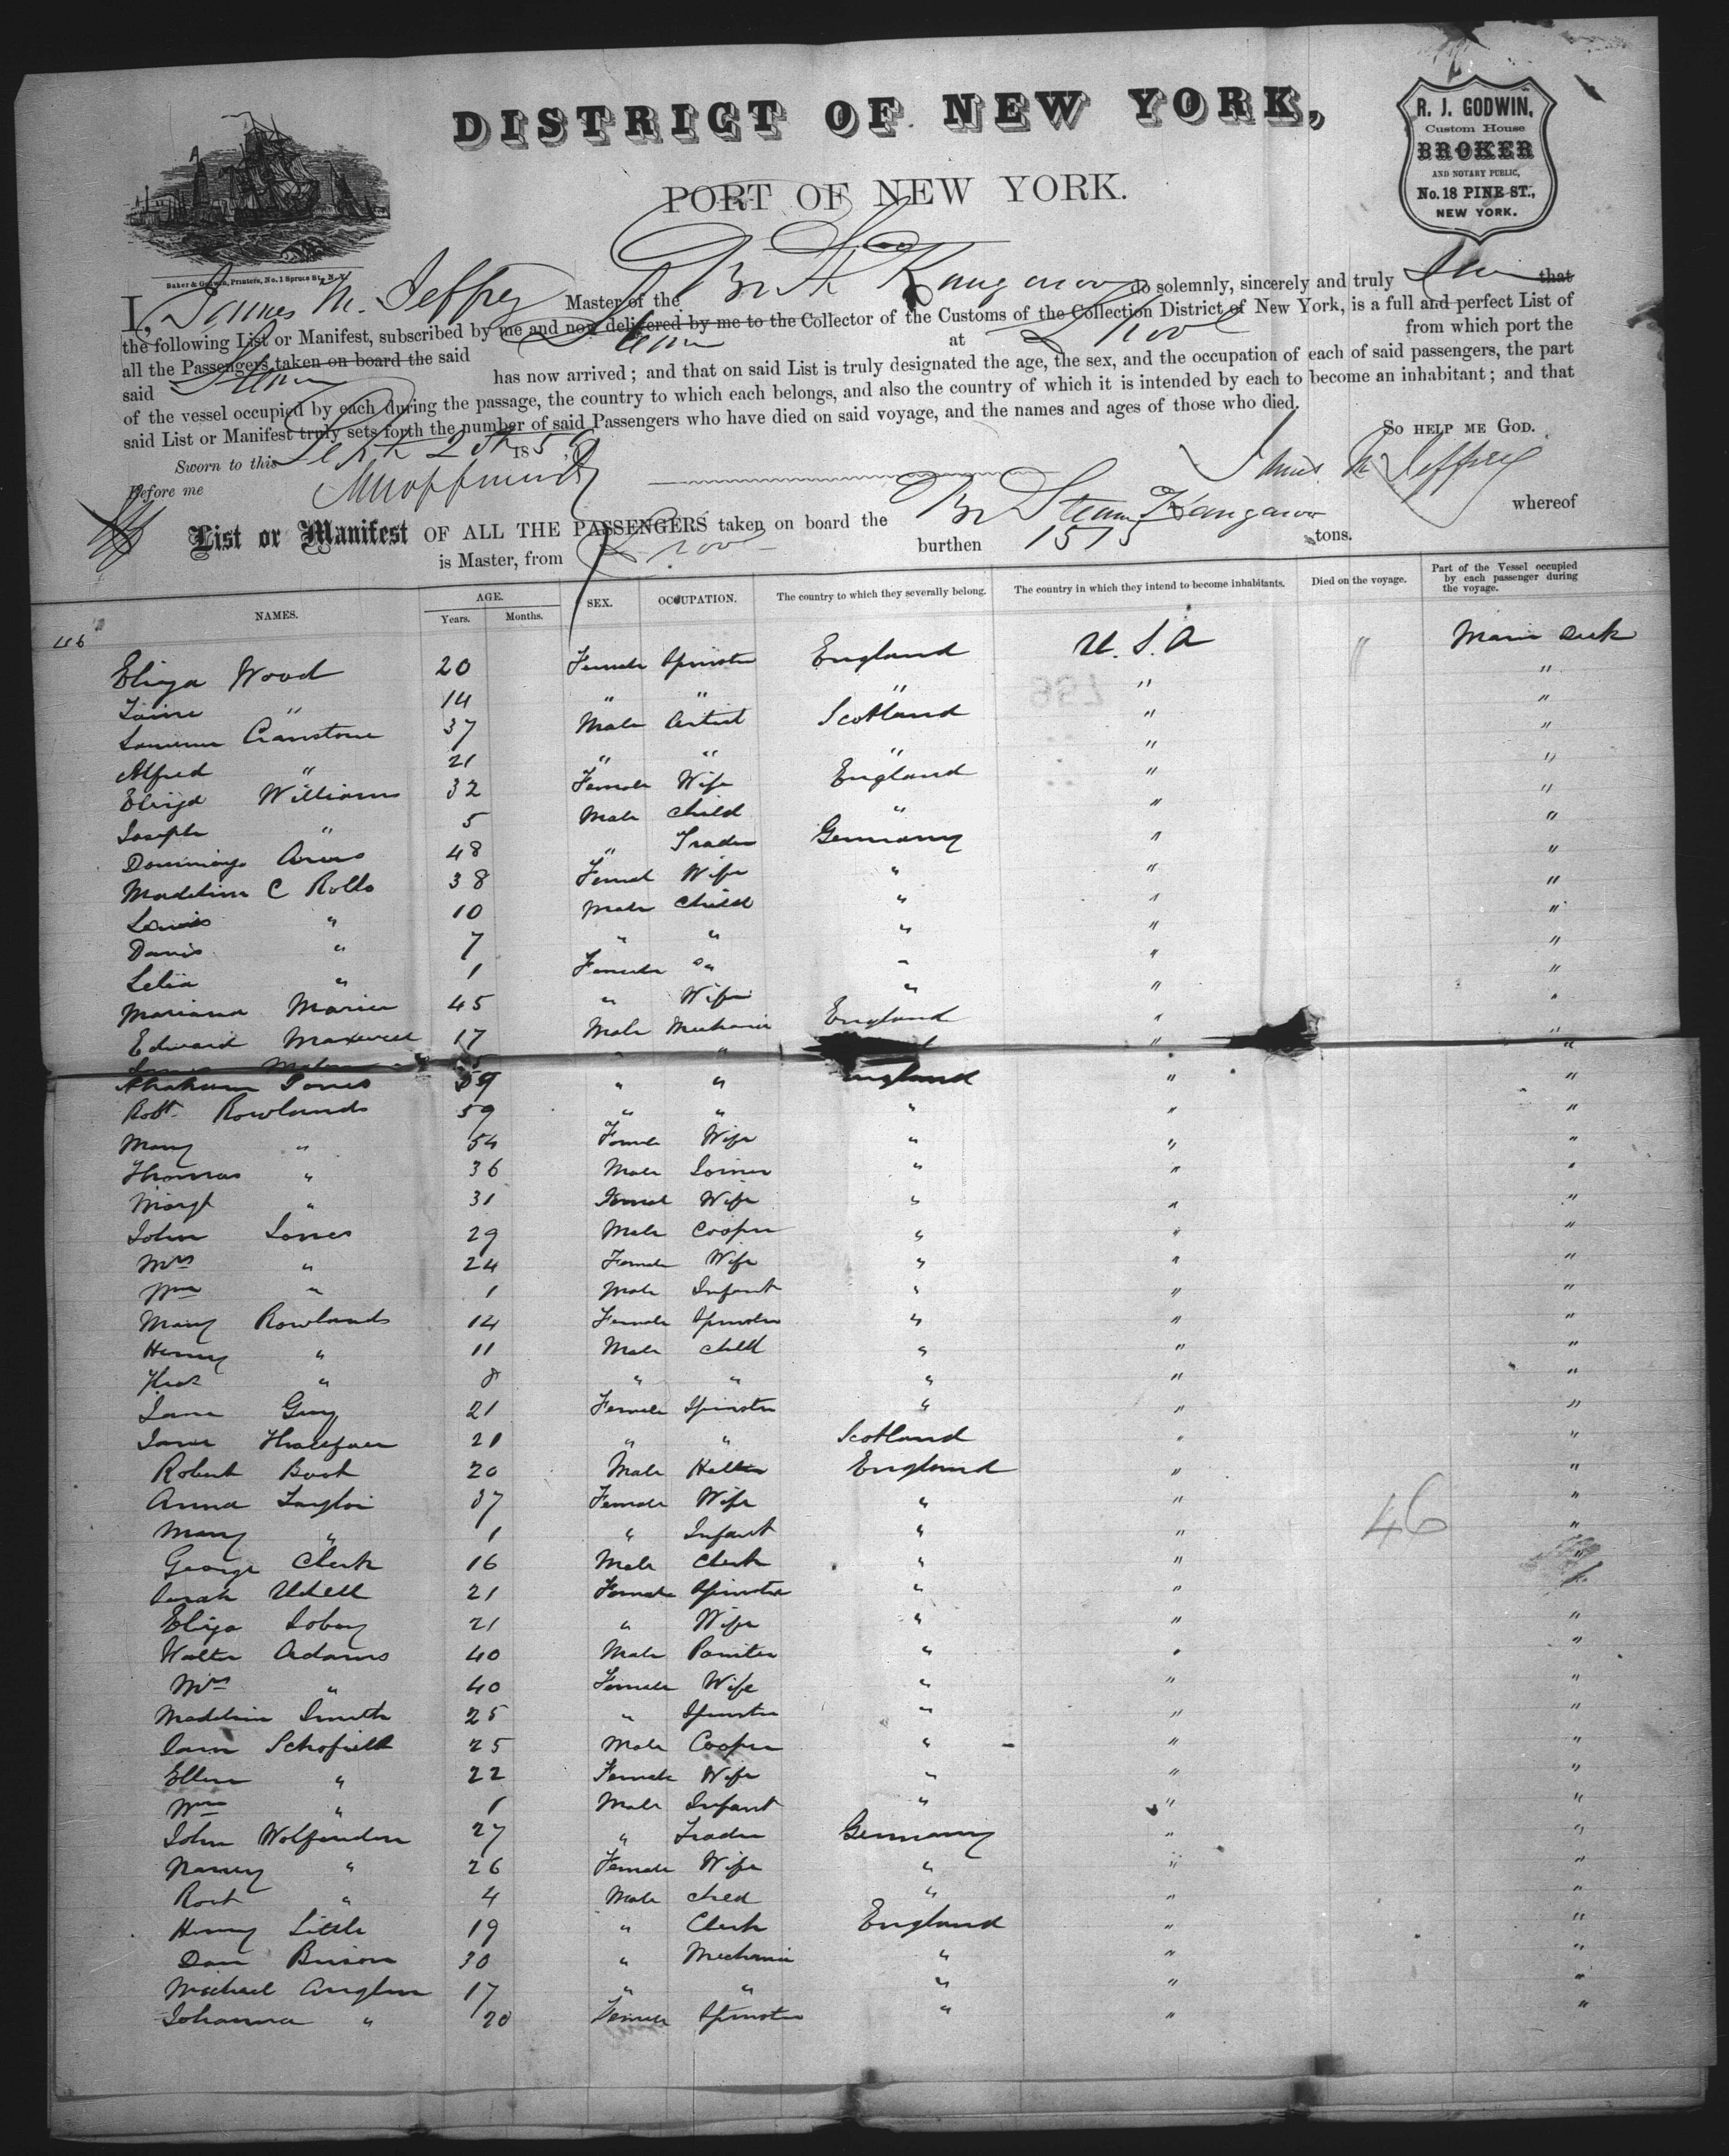 DISTRICT OF NEW YORK,
PORT OF NEW YORK.
R. J. GODWIN,
Custom House
BROKER
AND NOTARY PUBLIC,
No. 18 PINE ST.,
NEW YORK.
Baker & Godwin, Printers, No. 1 Spruce St., N. Y.
I, James M. Jeffrey Master of the Br St Kangaroo do solemnly, sincerely and truly that
the following List or Manifest, subscribed by me and now delivered by me to the Collector of the Customs of the Collection District of New York, is a full and perfect List of
all the Passengers taken on board the said Steamer at L'pool from which port the
said Steamer has now arrived; and that on said List is truly designated the age, the sex, and the occupation of each of said passengers, the part
of the vessel occupied by each during the passage, the country to which each belongs, and also the country of which it is intended by each to become an inhabitant; and that
said List or Manifest truly sets forth the number of said Passengers who have died on said voyage, and the names and ages of those who died.
SO HELP ME GOD.
Sworn to this Sept 185
Before me
James M Jeffrey
List or Manifest OF ALL THE PASSENGERS taken on board the Br Steamer Kangaroo whereof
is Master, from L'pool burthen 1575 tons.
NAMES. AGE. Years. Months. SEX. OCCUPATION. The country to which they severally belong. The country in which they intend to become inhabitants. Died on the voyage. Part of the Vessel occupied by each passenger during the voyage.
Eliza Wood 20 Female Spinster England U. S. A " Main Deck
" 14 " " " " "
Cranstone 37 Male Artist Scotland " "
Alfred " 21 " " " " "
Eliza Williams 32 Female Wife England " "
Joseph " 5 Male Child " " "
48 " Trader Germany " "
Madeline C Rollo 38 Femal Wife " " "
Louis " 10 Male Child " " "
" 7 " " " " "
Lelia " 1 Female " " " "
Mariana 45 " Wife " " "
Edward Maxwell 17 Male Mechanic England " "
" " " "
Abraham Jones 59 " " England " "
Robt. Rowlands 59 " " " " "
Mary " 54 Female Wife " " "
Thomas " 36 Male Joiner " " "
Margt " 31 Femal Wife " " "
John Jones 29 Male Cooper " " "
Mrs " 24 Female Wife " " "
Wm " 1 Male Infant " " "
Mary Rowlands 14 Female Spinster " " "
Henry " 11 Male Child " " "
" 8 " " " " "
Jane Guy 21 Female Spinster " " "
Jane 21 " " Scotland " "
Robert 20 Male England " "
Anna Taylor 37 Female Wife " " "
Mary " 1 " Infant " " 46 "
George Clark 16 Male Clerk " " "
Sarah 21 Female Spinster " " "
Eliza 21 " Wife " " "
Walter Adams 40 Male Painter " " "
Mrs " 40 Female Wife " " "
Madeline Smith 25 " Spinster " " "
Schofield 25 Male Cooper " " "
Ellen " 22 Female Wife " " "
Wm " 1 Male Infant " " "
John Wolfenden 27 " Trader Germany " "
Nancy " 26 Female Wife " " "
Robt " 4 Male Child " " "
Henry Little 19 " Clerk England " "
Dan 30 " Mechanic " " "
Michael Anglim 17 " " " " "
Johanna " 20 Female Spinster " " "